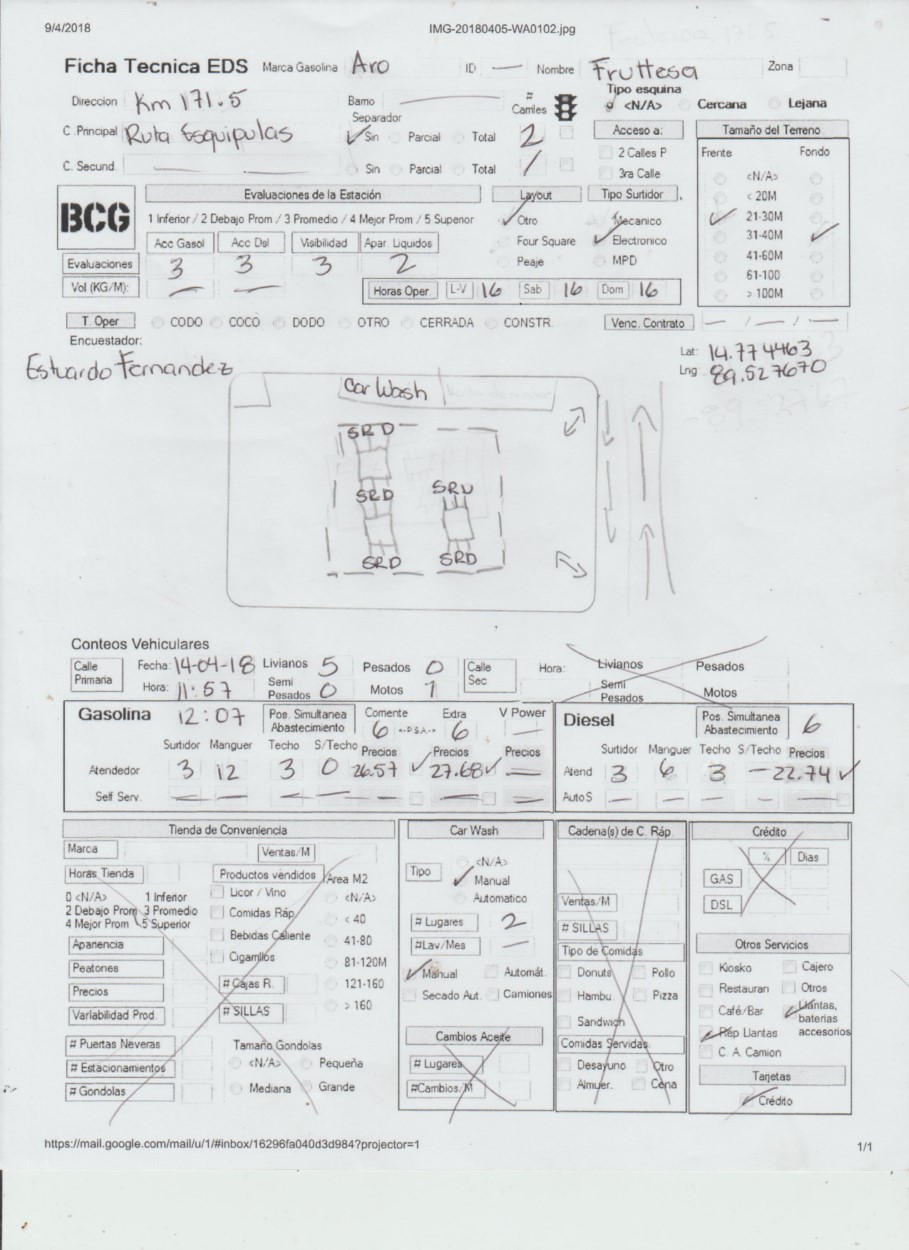 9/4/2018 IMG-20180405-WA0102.jpg
Ficha Tecnica EDS Marca Gasolina Aro ID — Nombre Fruttesa Zona
Direccion Km 171.5 Barrio — # Carriles Tipo esquina <N/A> Cercana Lejana
C. Principal Ruta Esquipulas Separador Sin Parcial Total 2 Acceso a: Tamaño del Terreno
C. Secund. — — Sin Parcial Total / 2 Calles P Frente Fondo
3ra Calle <N/A>
BCG Evaluaciones de la Estación Layout Tipo Surtidor < 20M
1 Inferior / 2 Debajo Prom / 3 Promedio / 4 Mejor Prom / 5 Superior Otro Mecanico 21-30M
Acc Gasol Acc Dsl Visibilidad Apar. Liquidos Four Square Electronico 31-40M
Evaluaciones 3 3 3 2 Peaje MPD 41-60M
Vol (KG/M): — — Horas Oper. L-V 16 Sab 16 Dom 16 61-100
> 100M
T. Oper CODO COCO DODO OTRO CERRADA CONSTR. Venc. Contrato — / — / —
Encuestador:
Estuardo Fernandez
Lat: 14.774463
Lng 89.527670
Car Wash
SRD
SRD SRD
SRD SRD
Conteos Vehiculares
Calle Primaria Fecha: 14-04-18 Livianos 5 Pesados 0 Calle Sec Hora: Livianos Pesados
Hora: 11:57 Semi Pesados 0 Motos 1 Semi Pesados Motos
Gasolina 12:07 Pos. Simultanea Abastecimiento Corriente 6 <-P.S.A-> Extra 6 V Power — Diesel Pos. Simultanea Abastecimiento 6
Surtidor Manguer Techo S/Techo Precios Precios Precios Surtidor Manguer Techo S/Techo Precios
Atendedor 3 12 3 0 26.57 27.68 — Atend 3 6 3 — 22.74
Self Serv. — — — — — — — Auto S — — — — —
Tienda de Conveniencia Car Wash Cadena(s) de C. Ráp. Crédito
Marca Ventas/M <N/A> % Dias
Horas Tienda Productos vendidos Area M2 Tipo Manual GAS
0 <N/A> 1 Inferior Licor / Vino <N/A> Automatico Ventas/M DSL
2 Debajo Prom 3 Promedio Comidas Ráp. < 40 # Lugares 2 # SILLAS
4 Mejor Prom 5 Superior Bebidas Caliente 41-80 #Lav/Mes — Tipo de Comidas Otros Servicios
Apariencia Cigarrillos 81-120M Manual Automát. Donuts Pollo Kiosko Cajero
Peatones # Cajas R. 121-160 Secado Aut. Camiones Hambu. Pizza Restauran Otros
Precios # SILLAS > 160 Sandwich Café/Bar Llantas, baterias accesorios
Variabilidad Prod. Cambios Aceite Comidas Servidas Rep Llantas
# Puertas Neveras Tamaño Gondolas # Lugares Desayuno Otro C. A. Camion
# Estacionamientos <N/A> Pequeña #Cambios/M Almuer. Cena Tarjetas
# Gondolas Mediana Grande Crédito
https://mail.google.com/mail/u/1/#inbox/16296fa040d3d984?projector=1 1/1